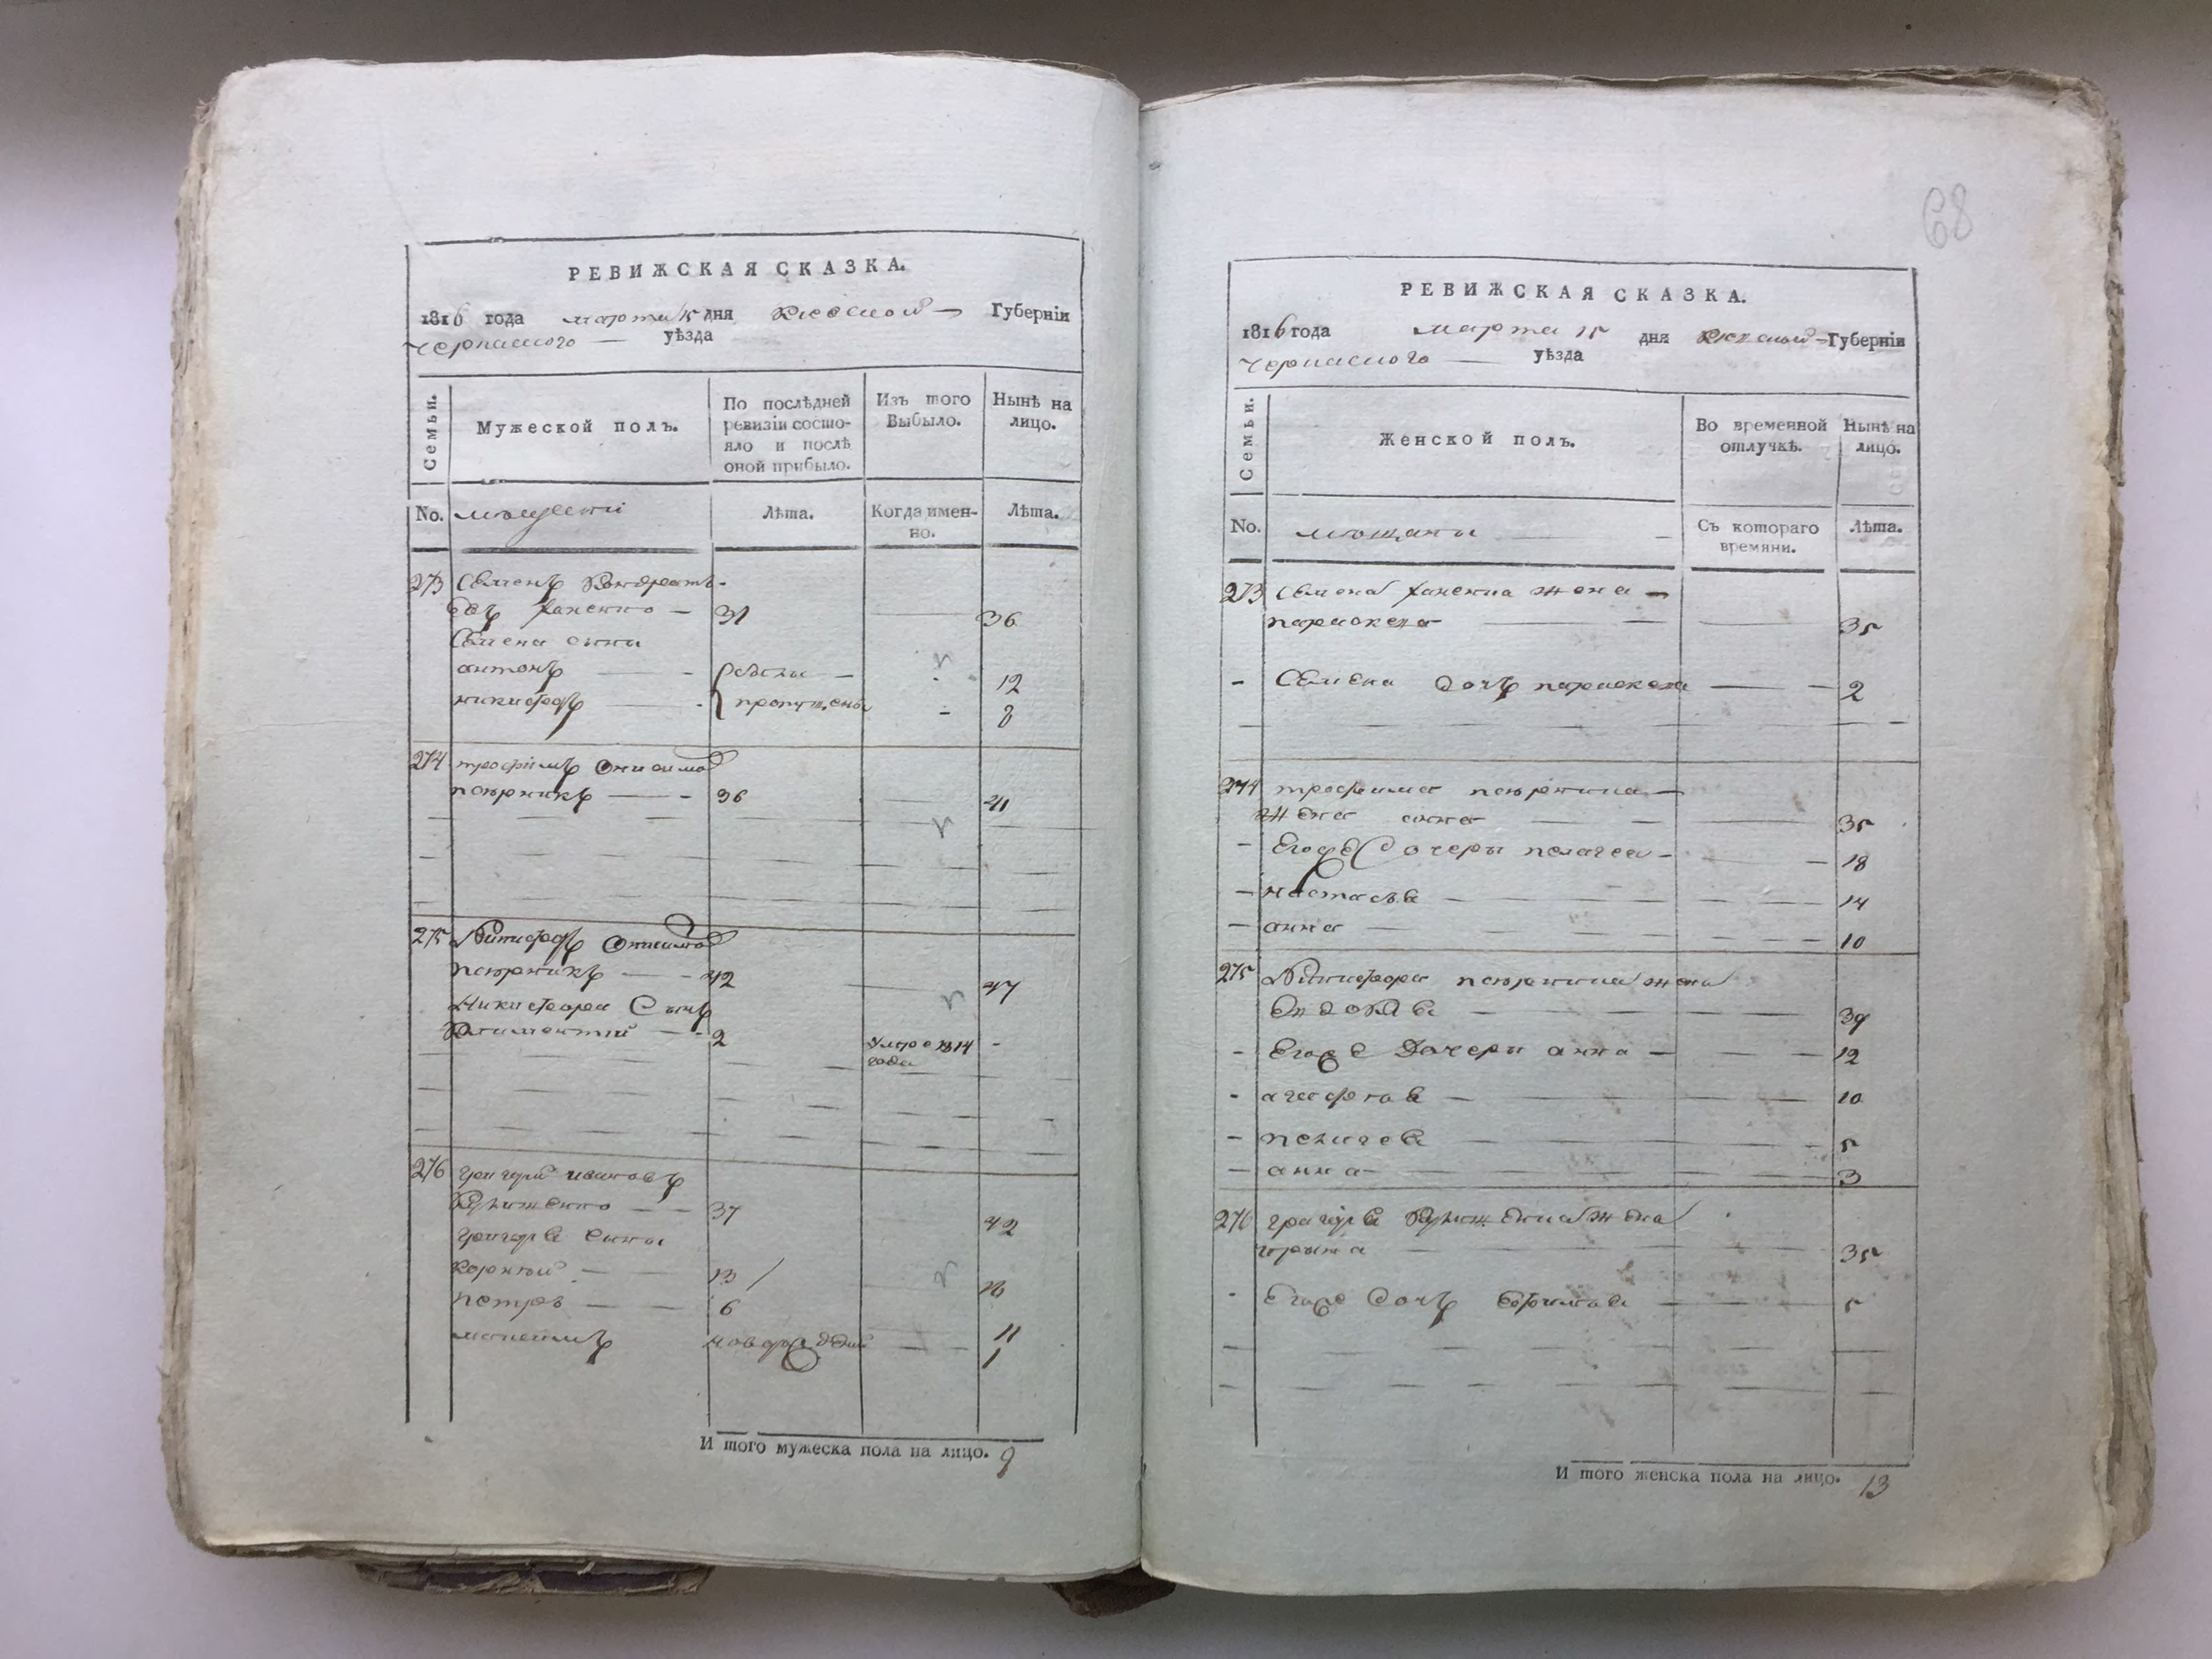 68
РЕВИЖСКАЯ СКАЗКА.
1816 года марта 15 дня Киевской Губернїи
Черкаского уѣзда
Семьи.
Мужеской полъ.
По послѣдней ревизїи состояло и послѣ оной прибыло.
Изъ того Выбыло.
Нынѣ на лицо.
No. мещане
Лѣта.
Когда именно.
Лѣта.
273 Семенъ Кондратьевъ
31 36
Семена сыны
антонъ 12
никифоръ пропущены 8
274 трофимъ Онисимов
36 41
275 Никифоръ Онисимов
42 47
Никифора Сынъ
Климентий 2 умре 1814 года
276 григорий ивановъ
37 42
григорiя сыны
корнѣй 13 18
петръ 6 11
максимъ новорожденный 1
И того мужеска пола на лицо. 9
РЕВИЖСКАЯ СКАЗКА.
1816 года марта 15 дня Киевской Губернїи
Черкаского уѣзда
Семьи.
Женской полъ.
Во временной отлучкѣ.
Нынѣ на лицо.
No. мещанки
Съ котораго времяни.
Лѣта.
273 Семена жена
параскева 35
Семена дочь параскева 2
274 трофима
жена анна 35
Его дочери пелагея 18
настасья 14
анна 10
275 Никифора жена
Евдокия 39
Его Дочери анна 12
агафия 10
пелагея 5
анна 3
276 григория жена
ирина 35
Его дочь Ефимия 5
И того женска пола на лицо. 13